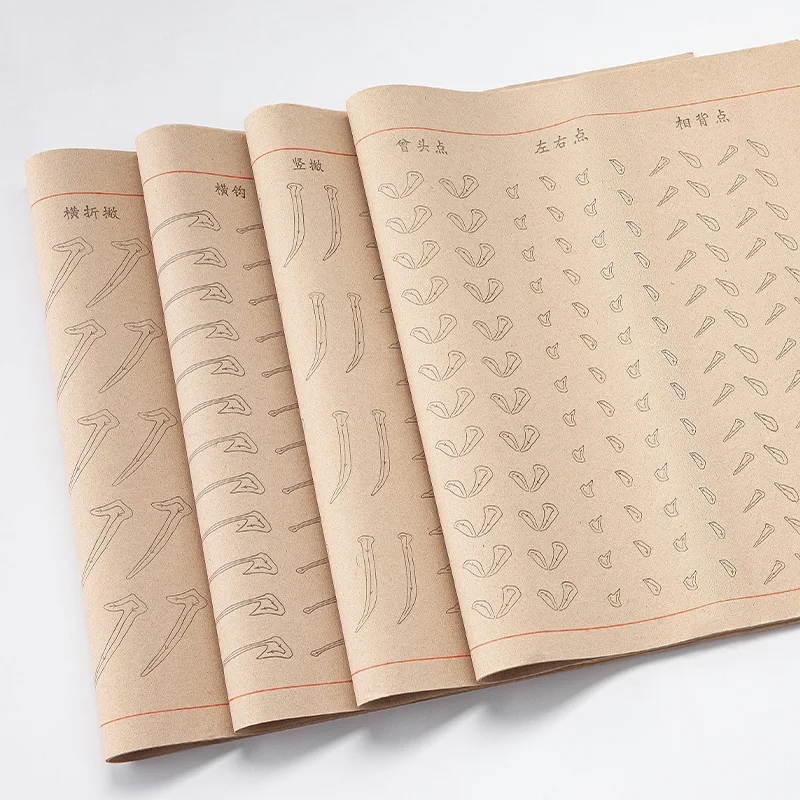 横折撇
横钩
竖撇
曾头点
左右点
相背点